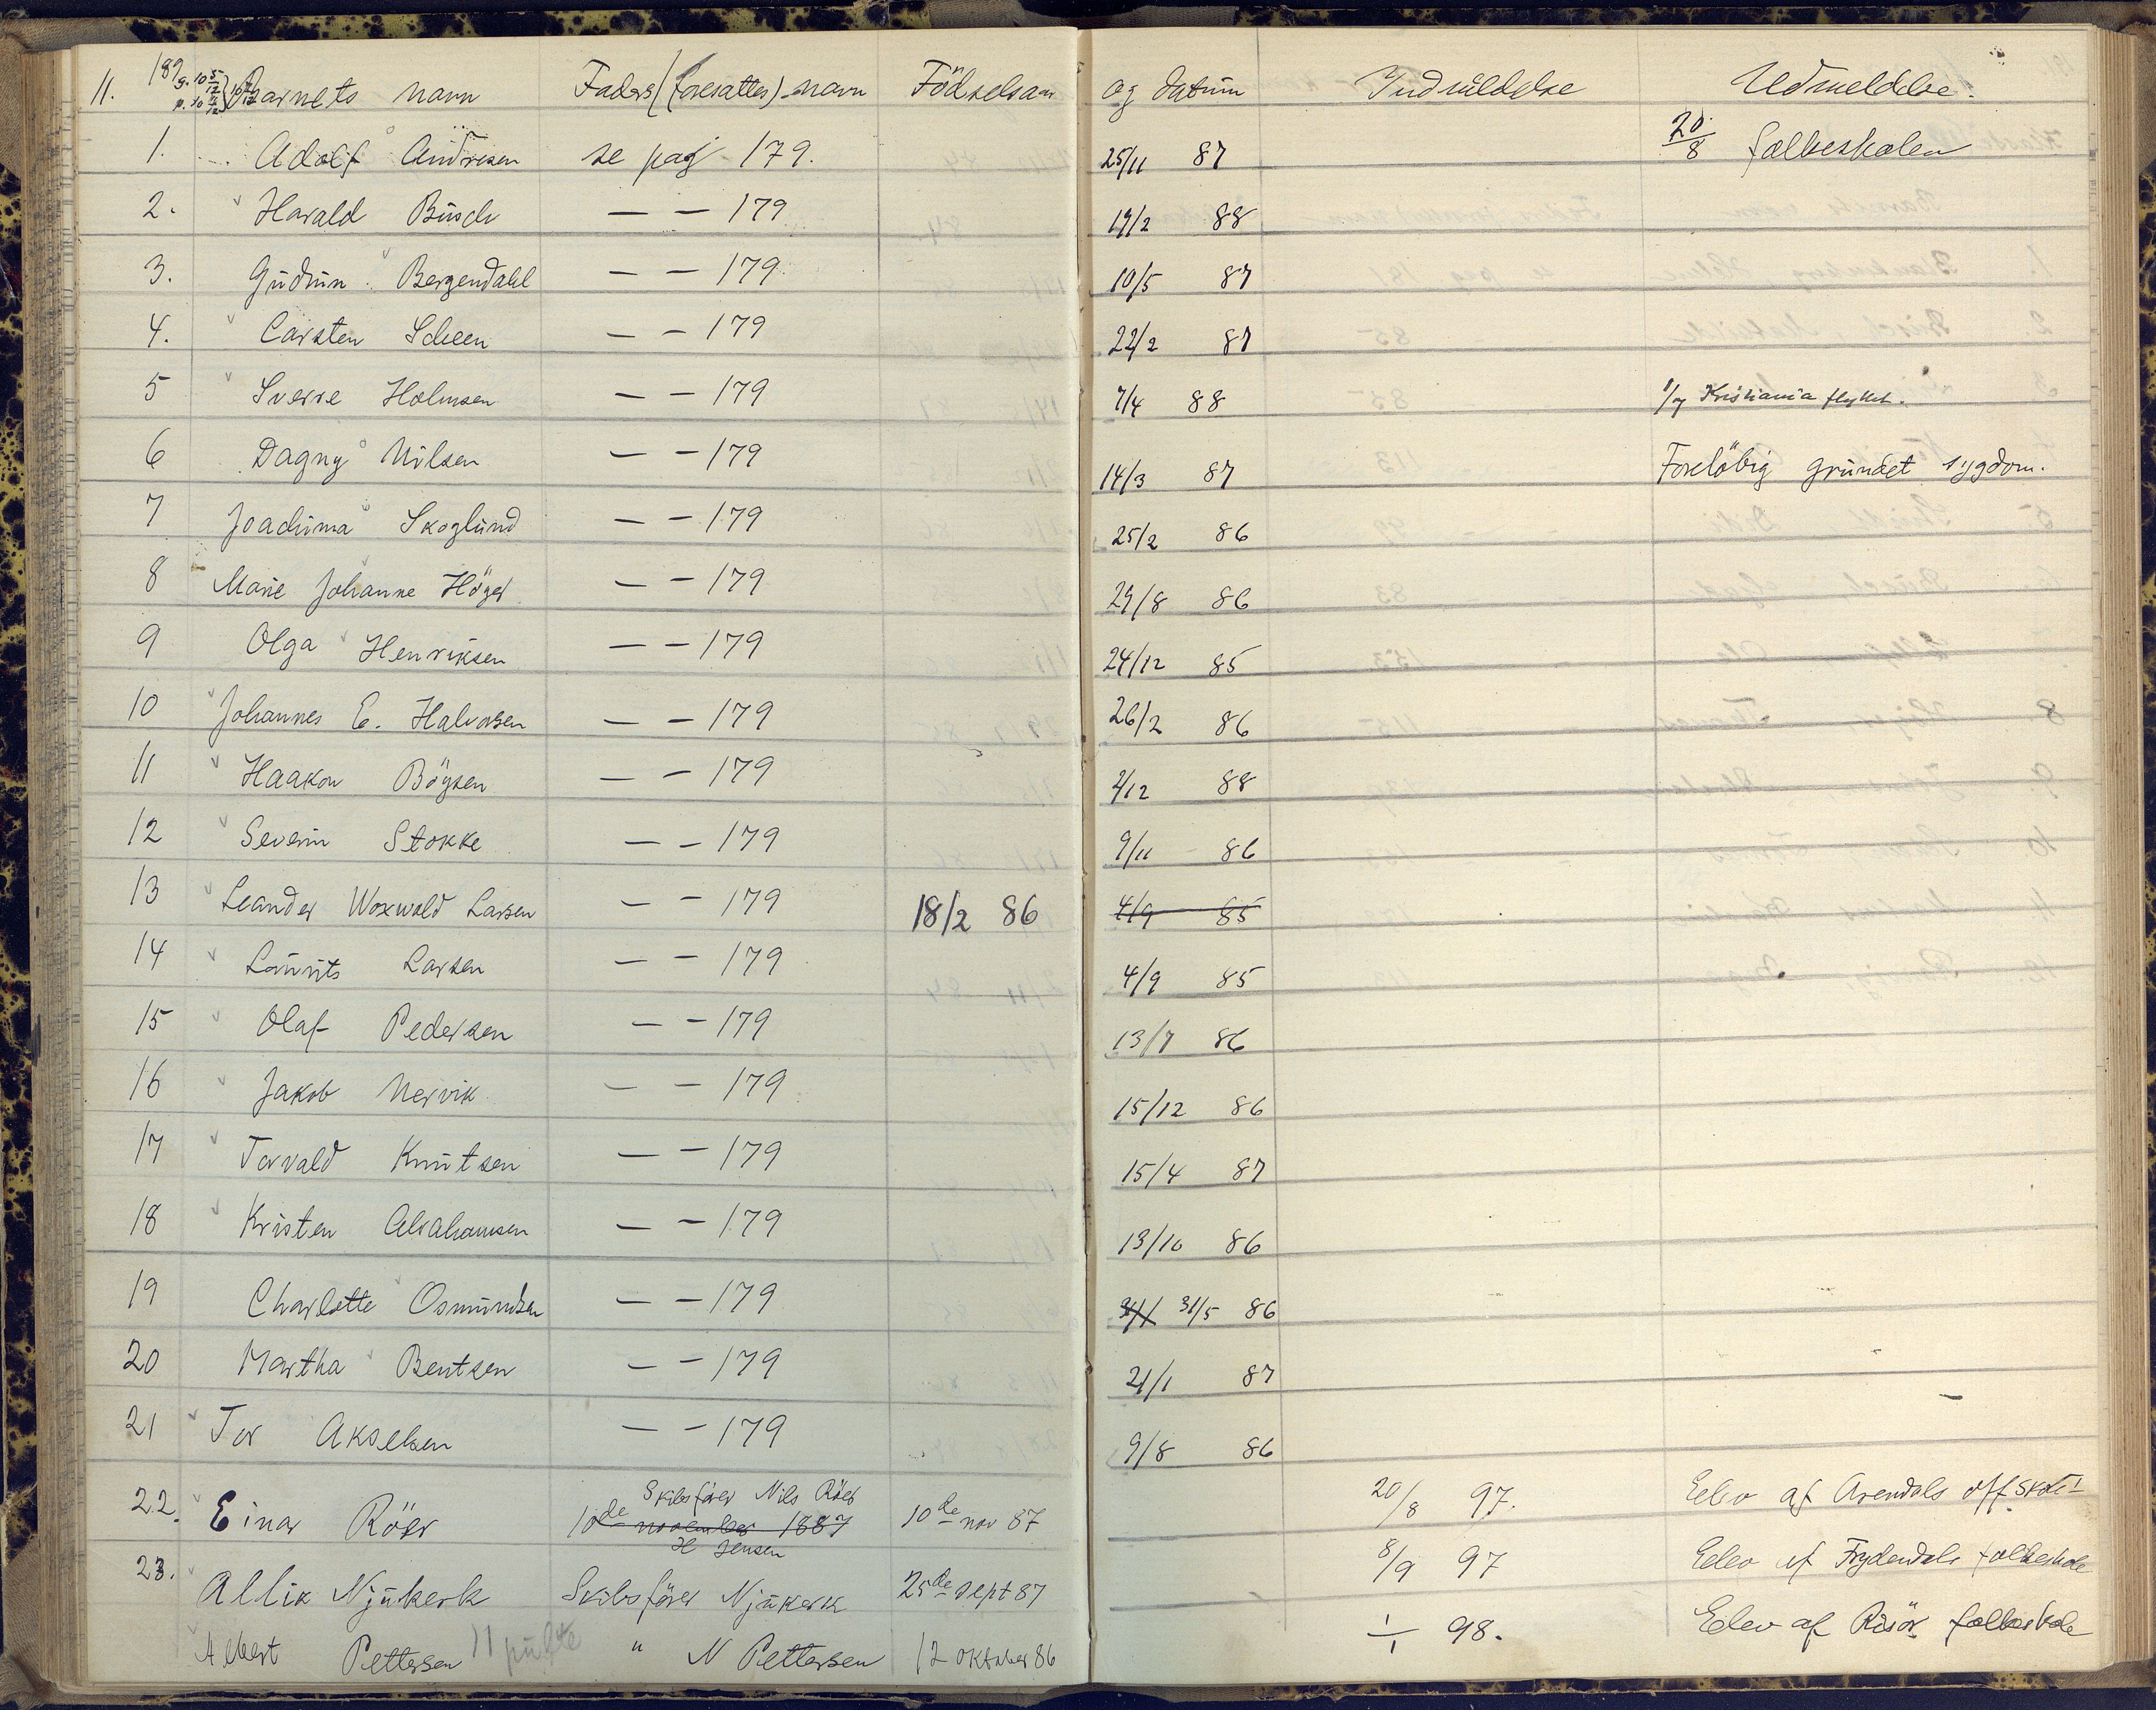 11. 189 Barnets navn Faders (foresattes) navn Födselsaar og datum Indmeldelse Udmeldelse.
1. Adolf Andresen se pag 179. 25/11 87 20/8 folkeskolen
2. Harald Büsch — — 179 19/2 88
3. Gudrun Bergendahl — — 179 10/5 87
4. Carsten Scheen — — 179 22/2 87
5 Sverre Holmsen — — 179 7/4 88 Kristiania flyttet.
6 Dagny Nilsen — — 179 14/3 87 Forelöbig grundet sygdom.
7 Joachima Skoglund — — 179 25/2 86
8 Marie Johanne Höyer — — 179 29/8 86
9 Olga Henriksen — — 179 24/12 85
10 Johannes E. Halvorsen — — 179 26/2 86
11 Haakon Böysen — — 179 2/12 88
12 Severin Stokke — — 179 9/11 86
13 Leander Woxwold Larsen — — 179 18/2 86 4/9 85
14 Laurits Larsen — — 179 4/9 85
15 Olaf Pedersen — — 179 13/7 86
16 Jakob Nervik — — 179 15/12 86
17 Torvald Knutsen — — 179 15/4 87
18 Kristen Abrahamsen — — 179 13/10 86
19 Charlotte Osmundsen — — 179 31/5 86
20 Martha Bentsen — — 179 21/1 87
21 Tor Akselsen — — 179 9/8 86
22. Einar Röer Skibsförer Nils Röer 10de november 1887 10de nov 87 20/8 97. Elev af Arendals off skole
H Jensen
23. Allik Njükerk Skibsförer Njükerk 25de sept 87 8/9 97 Elev af Frydendals folkeskole
Albert Pettersen " N Pettersen 12 oktober 86 1/1 98. Elev af Risör folkeskole